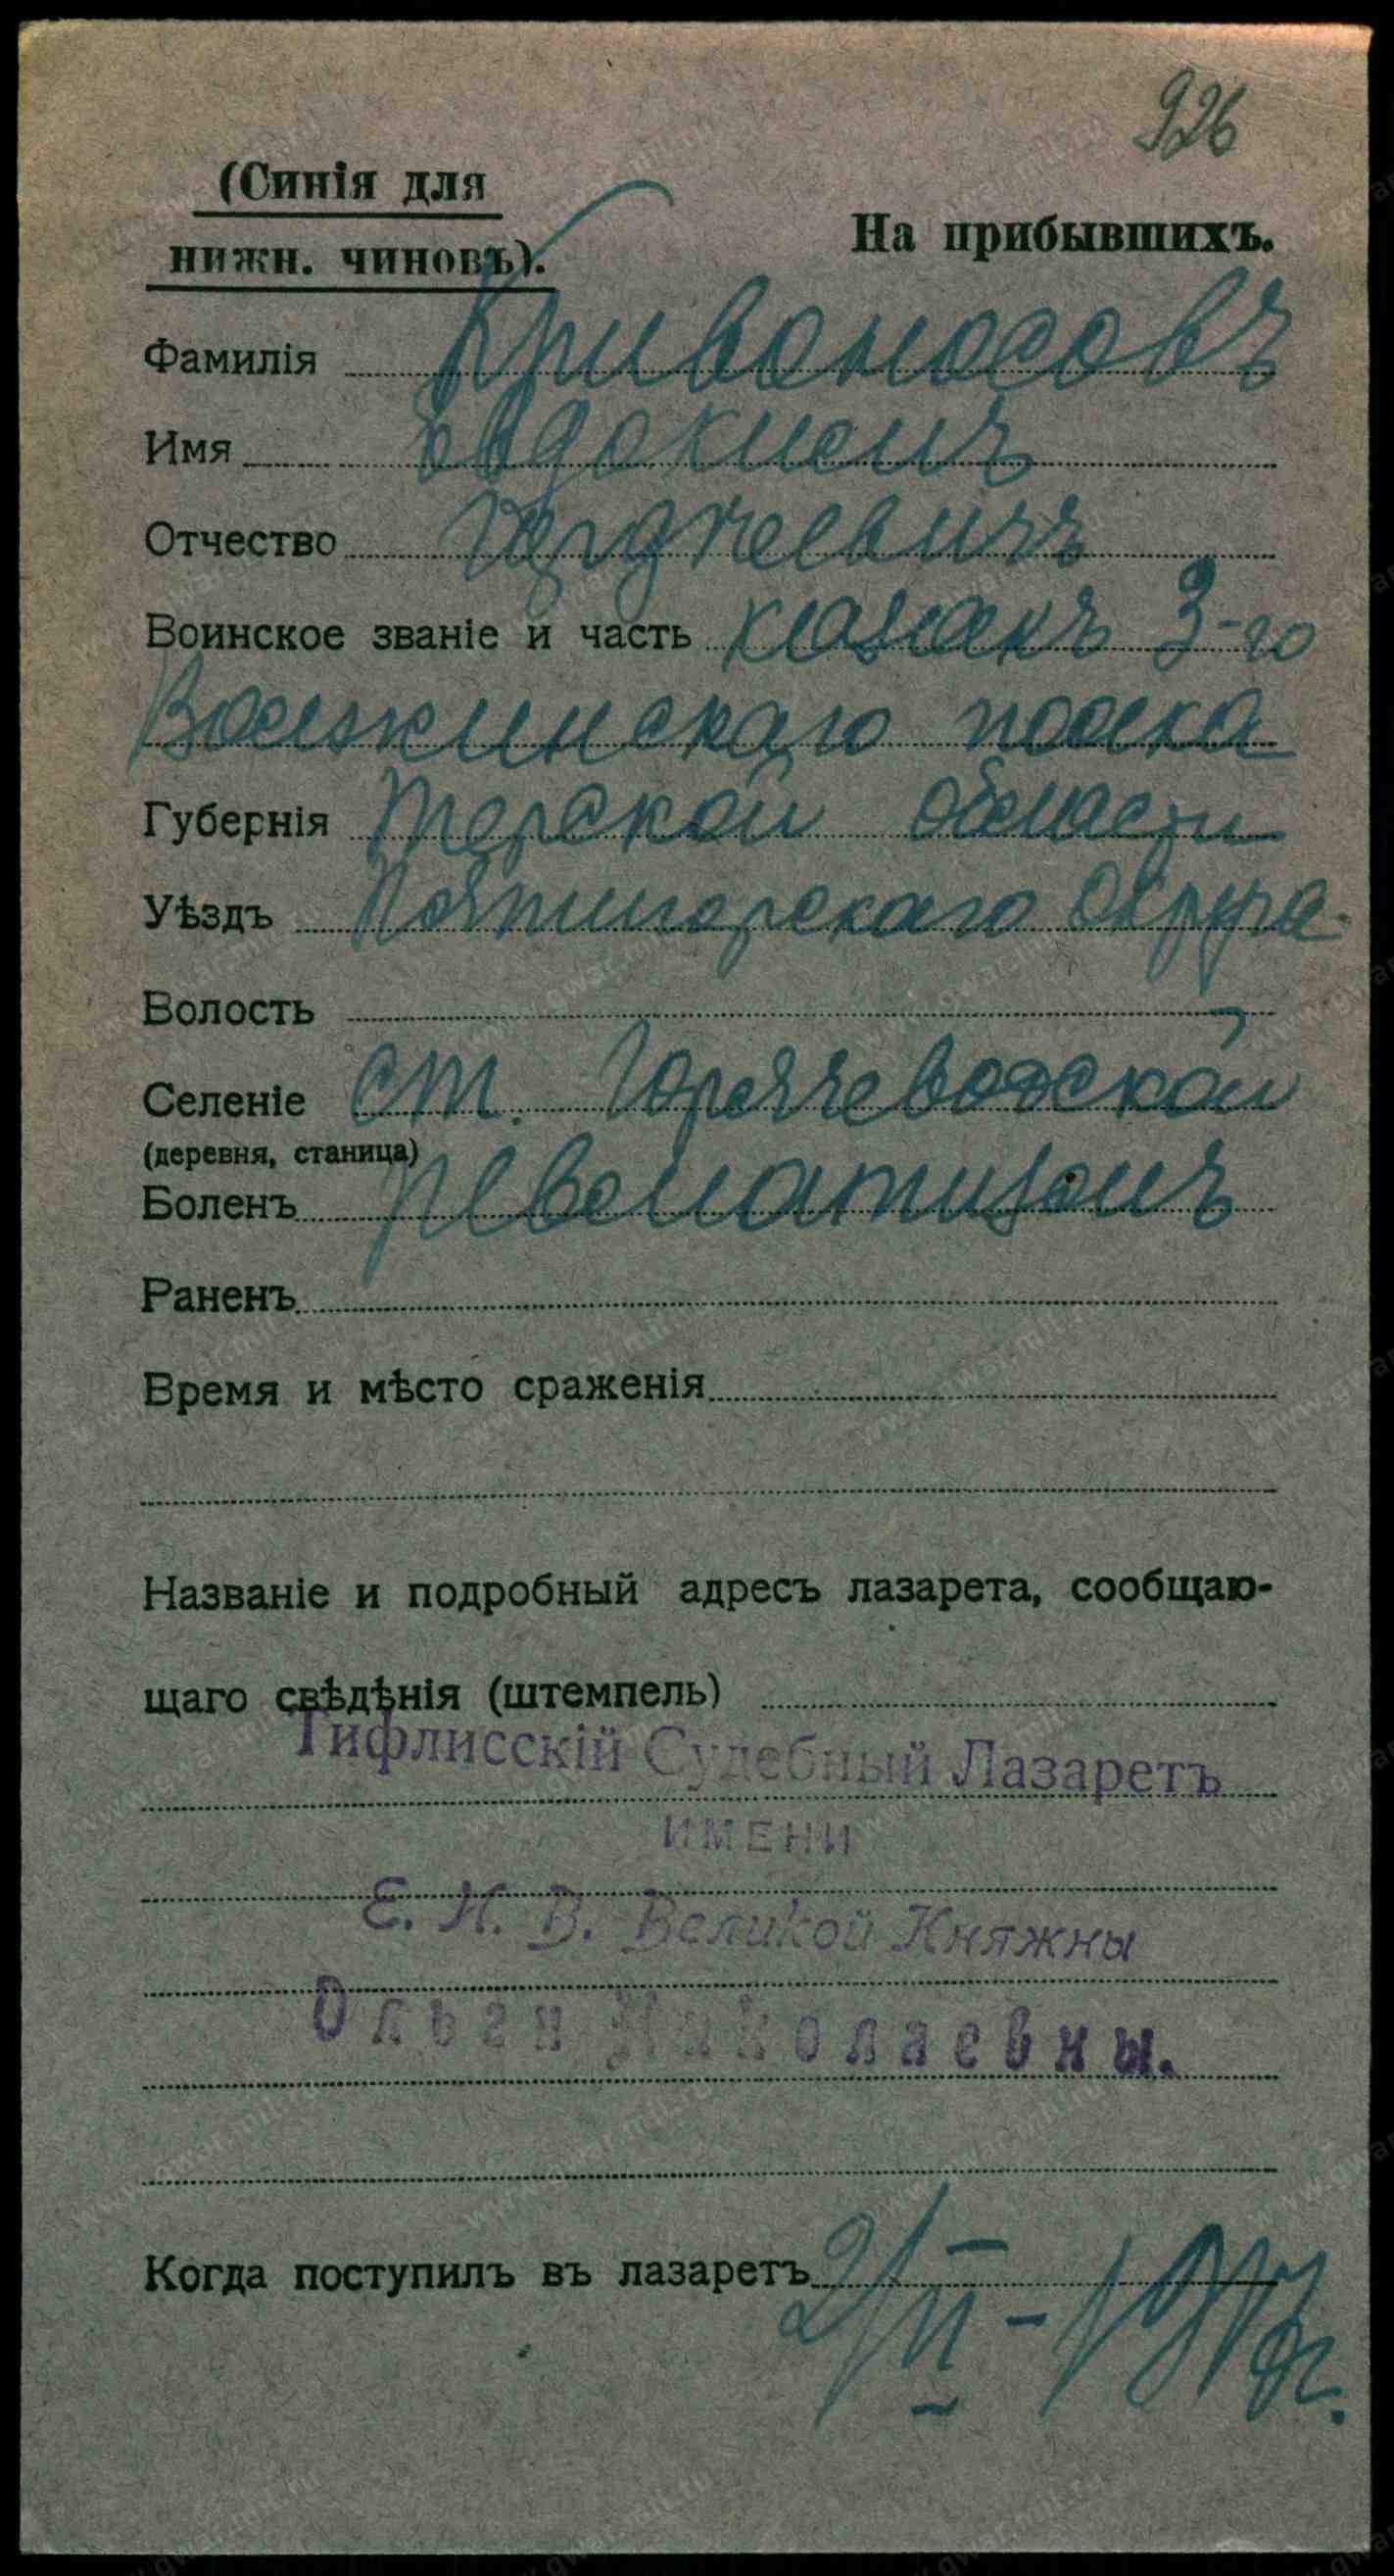 926
(Синія для
нижн. чиновъ).
На прибывшихъ.
Фамилія Кривоносовъ
Имя Евдокимъ
Отчество
Воинское званіе и часть казакъ 3-го
Волжскаго полка
Губернія Терской области
Уѣздъ Пятигорскаго Округа
Волость
Селеніе ст. Горячеводской
(деревня, станица)
Боленъ ревматизомъ
Раненъ
Время и мѣсто сраженія
Названіе и подробный адресъ лазарета, сообщаю-
щаго свѣдѣнія (штемпель)
Тифлисскій Судебный Лазаретъ
ИМЕНИ
Е. И. В. Великой Княжны
Ольги Николаевны.
Когда поступилъ въ лазаретъ 2/II-1917г.